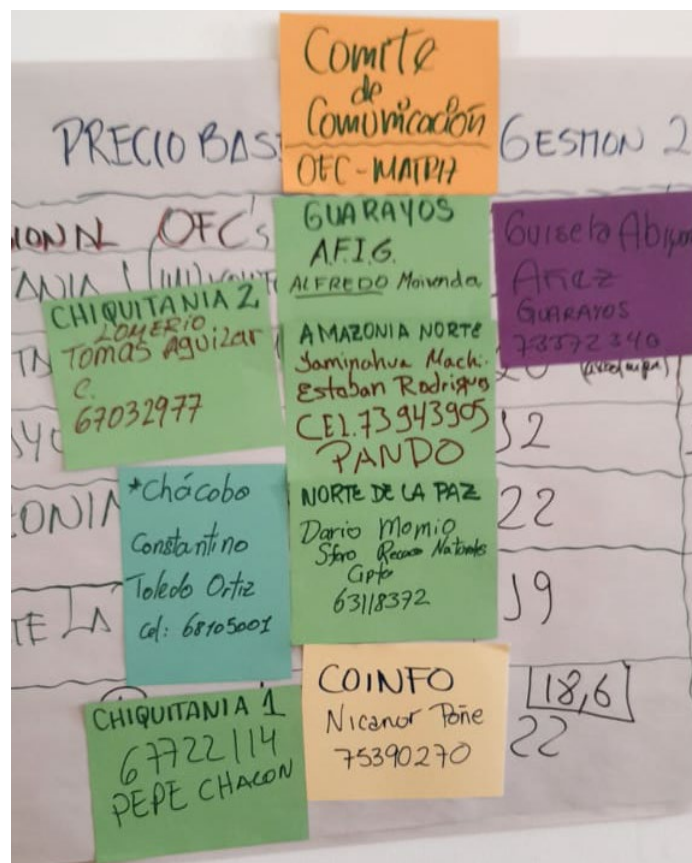 Comite
de
Comunicación
OFC-MATRIZ
PRECIO BAS
GESTION 2
IONAL OFC's
GUARAYOS
A.F.I.G.
ALFREDO Moirenda
Guisela
Añez
GUARAYOS
73372340
ANIA 1
CHIQUITANIA 2
LOMERIO
Tomas Aguilar
C.
67032977
AMAZONIA NORTE
Yaminahua Machi.
Esteban Rodrigues
CEL. 73943905
PANDO
12
ONIA
*Chácobo
Constantino
Toledo Ortiz
Cel: 68105001
NORTE DE LA PAZ
Dario Momio
Naturales
63118372
22
TE LA
19
CHIQUITANIA 1
67722114
PEPE CHACON
COINFO
Nicanor Poñe
75390270
18,6
22